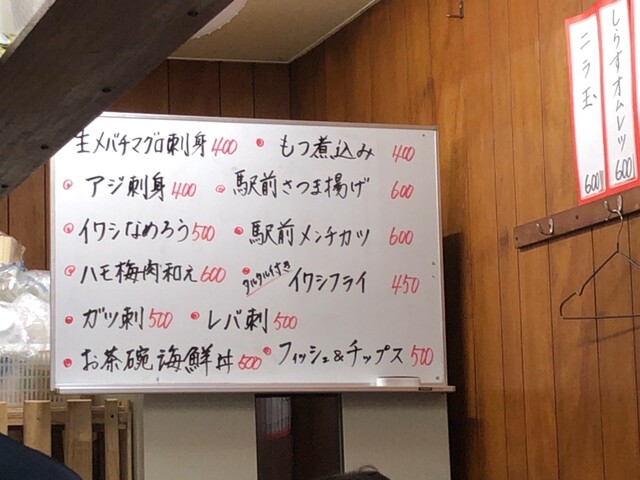 生メバチマグロ刺身 400 ・もつ煮込み 400
・アジ刺身 400 ・駅前さつま揚げ 600
・イワシなめろう 500 ・駅前メンチカツ 600
・ハモ梅肉和え 600 ・タルタル付き イワシフライ 450
・ガツ刺 500 ・レバ刺 500
・お茶碗海鮮丼 500 ・フィッシュ&チップス 500
しらすオムレツ 600
ニラ玉 600